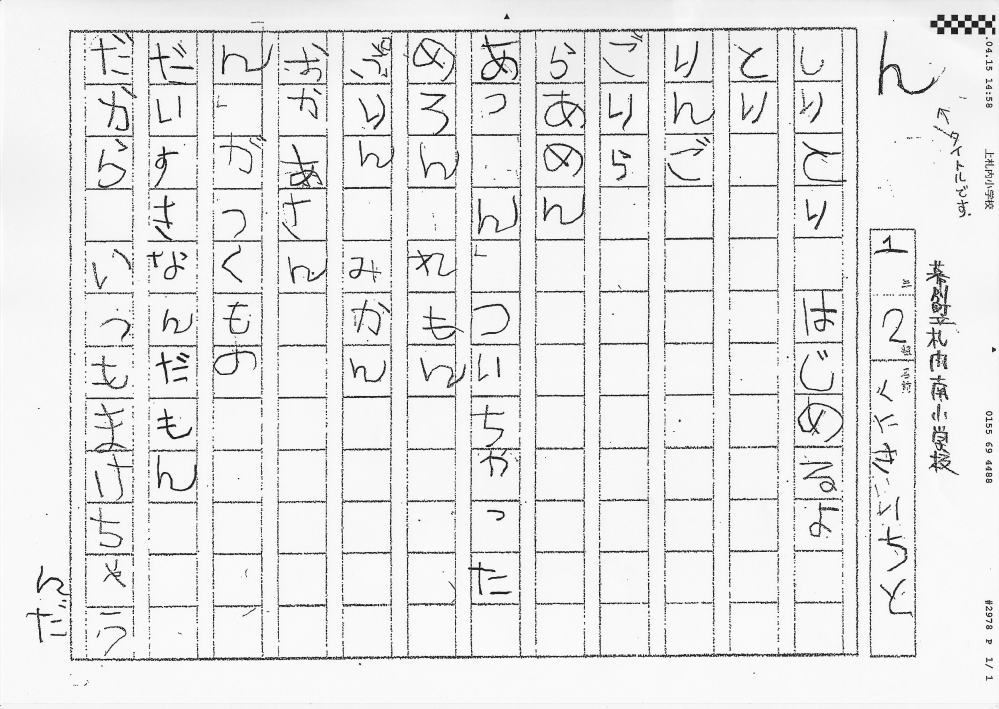 .04.15 14:58 上札内小学校 0155 69 4488 #2978 P 1/ 1
ん
←タイトルです。
幕別町立札内南小学校
1年2組 名前
しりとり はじめるよ
とり
りんご
ごりら
らあめん
あっ ん」ついちゃった
めろん れもん
ぷりん みかん
おかあさん
ん」がつくもの
だいすきなんだもん
だから いつもまけちゃう
んだ